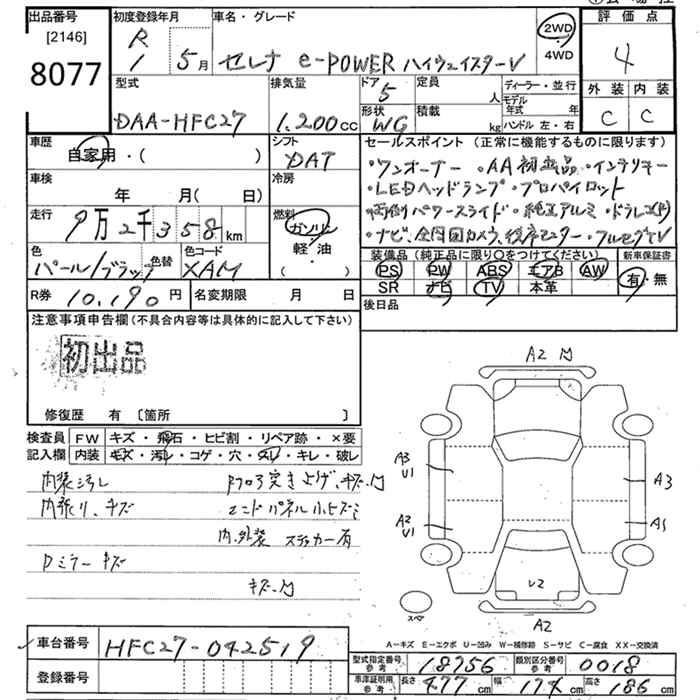 出品番号
[2146]
8077
初度登録年月
R
1 5月
車名・グレード
セレナ e-POWER ハイウェイスターV
2WD
4WD
評価点
4
外装 内装
C C
型式
DAA-HFC27
排気量
1.200cc
ドア
5
形状
WG
定員
人
積載
kg
ディーラー・並行
モデル
年式 年
ハンドル 左・右
車歴
自家用・( )
シフト
DAT
車検
年 月( 日)
冷房
走行
9万2千358km
燃料
ガソリン
軽・油
( )
色
パール/ブラック
色替
色コード
XAM
R券 10.190円
名変期限 月 日
セールスポイント (正常に機能するものに限ります)
・ワンオーナー ・AA初出品 ・インテリキー
・LEDヘッドランプ ・プロパイロット
・両側パワースライド ・純正アルミ ・ドラレコ(R)
・ナビ、全周囲カメラ、後席モニター ・フルセグTV
装備品(純正品に限り○をつけてください)
PS PW ABS エアB AW
SR ナビ TV 本革
新車保証書
有・無
後日品
注意事項申告欄(不具合内容等は具体的に記入して下さい)
初出品
修復歴 有 〔箇所 〕
検査員
記入欄
FW キズ・飛石・ヒビ割・リペア跡・×要
内装 キズ・汚レ・コゲ・穴・スレ・キレ・破レ
内装汚し
内張り、キズ
Dミラーキズ
Fフロア突き上げ、キズ
エンドパネル小ヒズミ
内、外装 ステッカー有
A2
A3
U1
A2
U1
A3
A1
U2
A2
スペア
A-キズ E-エクボ U-凹み W-補修跡 S-サビ C-腐食 XX-交換済
車台番号 HFC27-042519
登録番号
型式指定番号
参考
18756
類別区分番号
参考
0018
車庫証明用
参考
長さ 477cm 幅 174cm 高さ 186cm